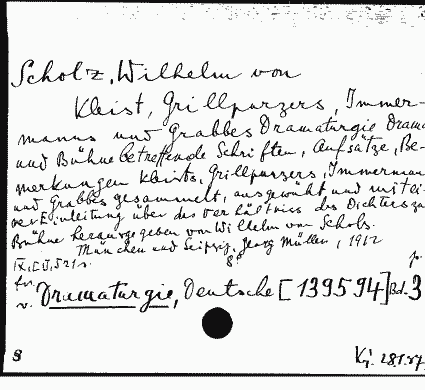 Scholz, Wilhelm von
Kleist, Grillparzers, Immer-
manns und Grabbes Dramaturgie Drama
und Bühne betreffende Schriften, Aufsätze, Be-
merkungen Kleists, Grillparzers, Immermann
und Grabbes gesammelt, ausgewählt und mit ei-
ner Einleitung über das Verhältnis des Dichters zu
Bühne herausgegeben von Wilhelm von Scholz.
München und Leipzig, Georg Müller, 1912
8°
Dramaturgie, Deutsche [139594] Bd. 3
v.
8